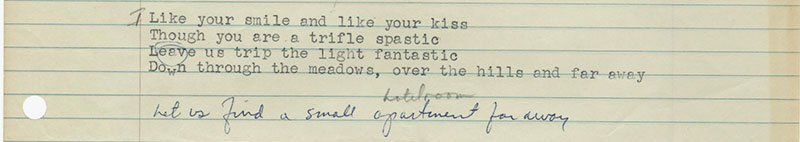 I Like your smile and like your kiss
Though you are a trifle spastic
Leave us trip the light fantastic
Down through the meadows, over the hills and far away
hotel room
Let us find a small apartment far away